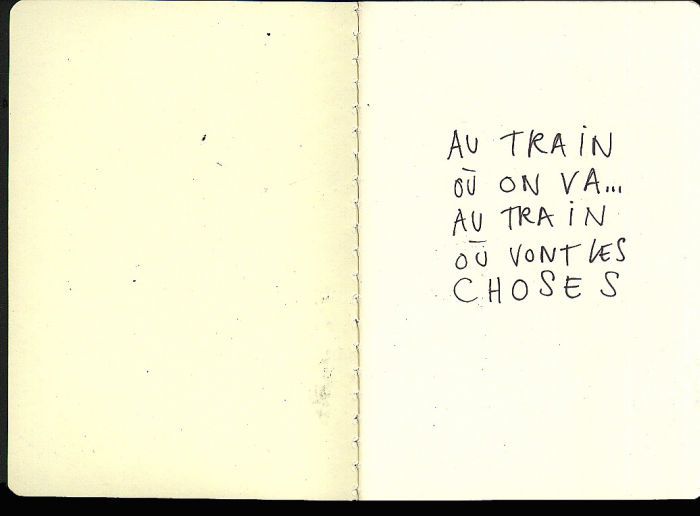 AU TRAIN
OÙ ON VA...
AU TRAIN
OÙ VONT LES
CHOSES